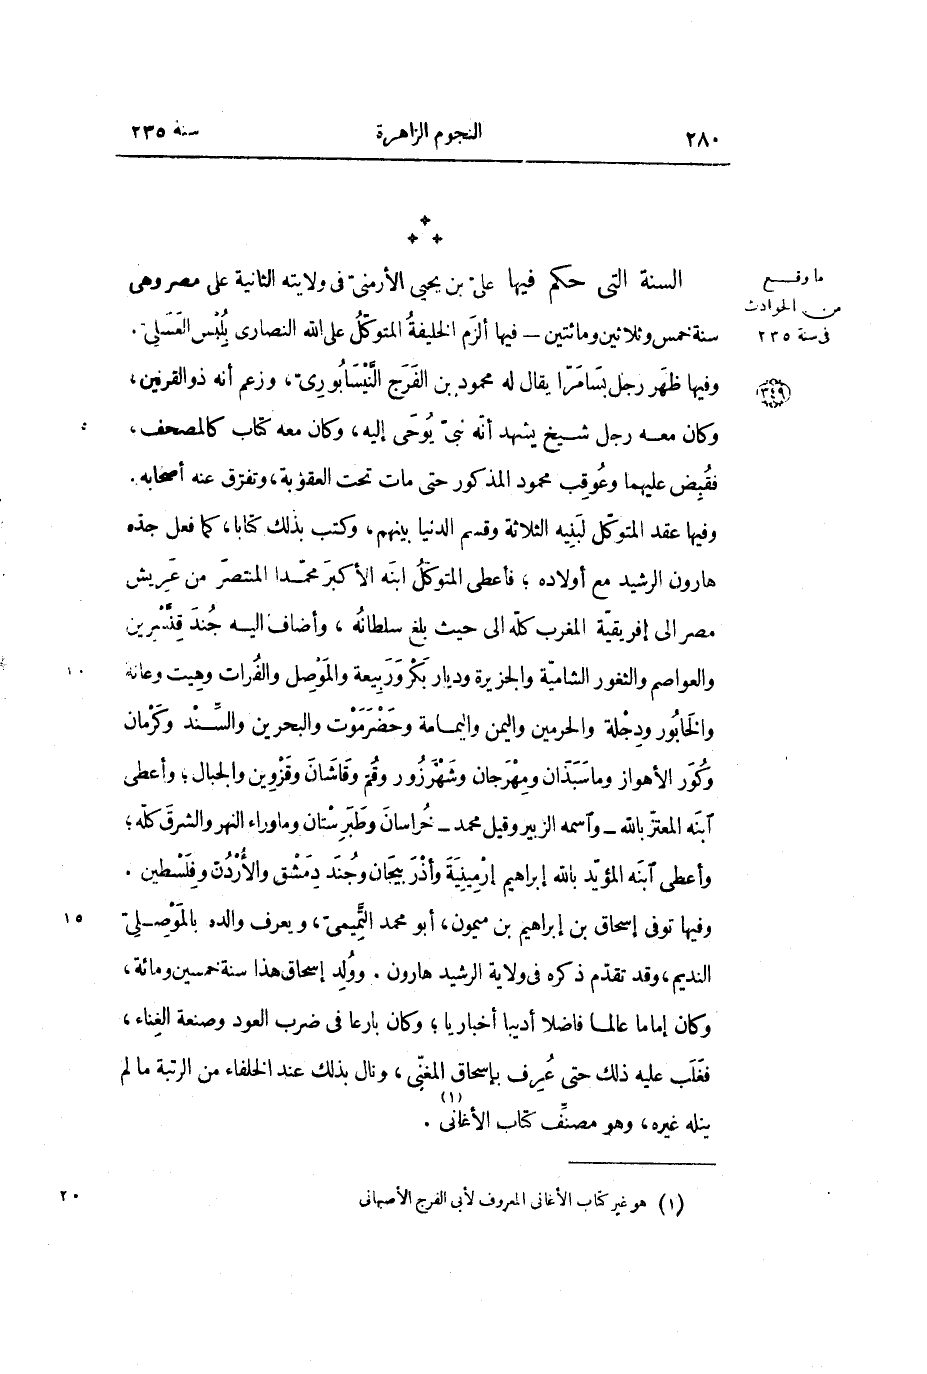 ٢٨٠ النجوم الزاهرة سنة ٢٣٥
ما وقع
من الحوادث
فى سنة ٢٣٥
٣٤٩
السنة التى حكم فيها علىّ بن يحيى الأرمنىّ فى ولايته الثانية على مصر وهى
سنة خمس وثلاثين ومائتين – فيها ألزَم الخليفةُ المتوكّلُ على الله النصارى بُلْبس العَسَلىّ.
وفيها ظهَر رجل بسَامَرّا يقال له محمود بن الفَرَج النَّيْسَابُورىّ، وزعم أنه ذو القرنين،
وكان معه رجل شيخ يشهد أنّه نبىّ يُوحَى إليه، وكان معه كتاب كالمصحف، ٥
فقُبِض عليهما وعُوقِب محمود المذكور حتى مات تحت العقوبة، وتفرّق عنه أصحابه.
وفيها عقد المتوكّل لبَنِيه الثلاثة وقسم الدنيا بينهم، وكتب بذلك كتابا، كما فعل جدّه
هارون الرشيد مع أولاده؛ فأعطى المتوكّلُ ابنَه الأكبرَ محمّدا المنتصرَ من عَرِيش
مصر الى إفريقيّة المغرب كلّه الى حيث بلغ سلطانُه، وأضاف اليه جُندَ قِنَّسْرين
والعواصم والثغور الشاميّة والجزيرة وديار بَكْر وَرَبِيعة والمَوْصِل والفُرات وهِيت وعانة ١٠
والخابُور ودِجْلة والحرمين واليمن واليمامة وحَضْرَمَوْت والبحرين والسِّنْد وكَرْمان
وكُوَر الأهواز وماسَبَذَان ومِهْرَجان وشَهْرَزُور وقُمّ وقَاشَانَ وقَزْوين والجبال؛ وأعطى
ٱبنَه المعتزّ بالله – وٱسمه الزبير وقيل محمد – خُراسانَ وطَبَرِسْتان وماوراء النهر والشرقَ كلّه؛
وأعطى ٱبنَه المؤيّد بالله إبراهيم إرْمِينِيَةَ وأذْرَبِيجَان وجُندَ دِمَشْق والأُرْدُنّ وفِلَسْطين.
وفيها توفى إسحاق بن إبراهيم بن ميمون، أبو محمد التَّمِيمىّ، ويعرف والده بالمَوْصِلىّ ١٥
النديم، وقد تقدّم ذكره فى ولاية الرشيد هارون. ووُلِد إسحاق هذا سنة خمسين ومائة،
وكان إماما عالما فاضلا أديبا أخباريا؛ وكان بارعا فى ضرب العود وصنعة الغِناء،
فغَلَب عليه ذلك حتى عُرِف بإسحاق المغنّى، ونال بذلك عند الخلفاء من الرتبة ما لم
ينله غيره، وهو مصنِّف كتاب الأغانى (١).
(١) هو غير كتاب الأغانى المعروف لأبى الفرج الأصبهانى ٢٠